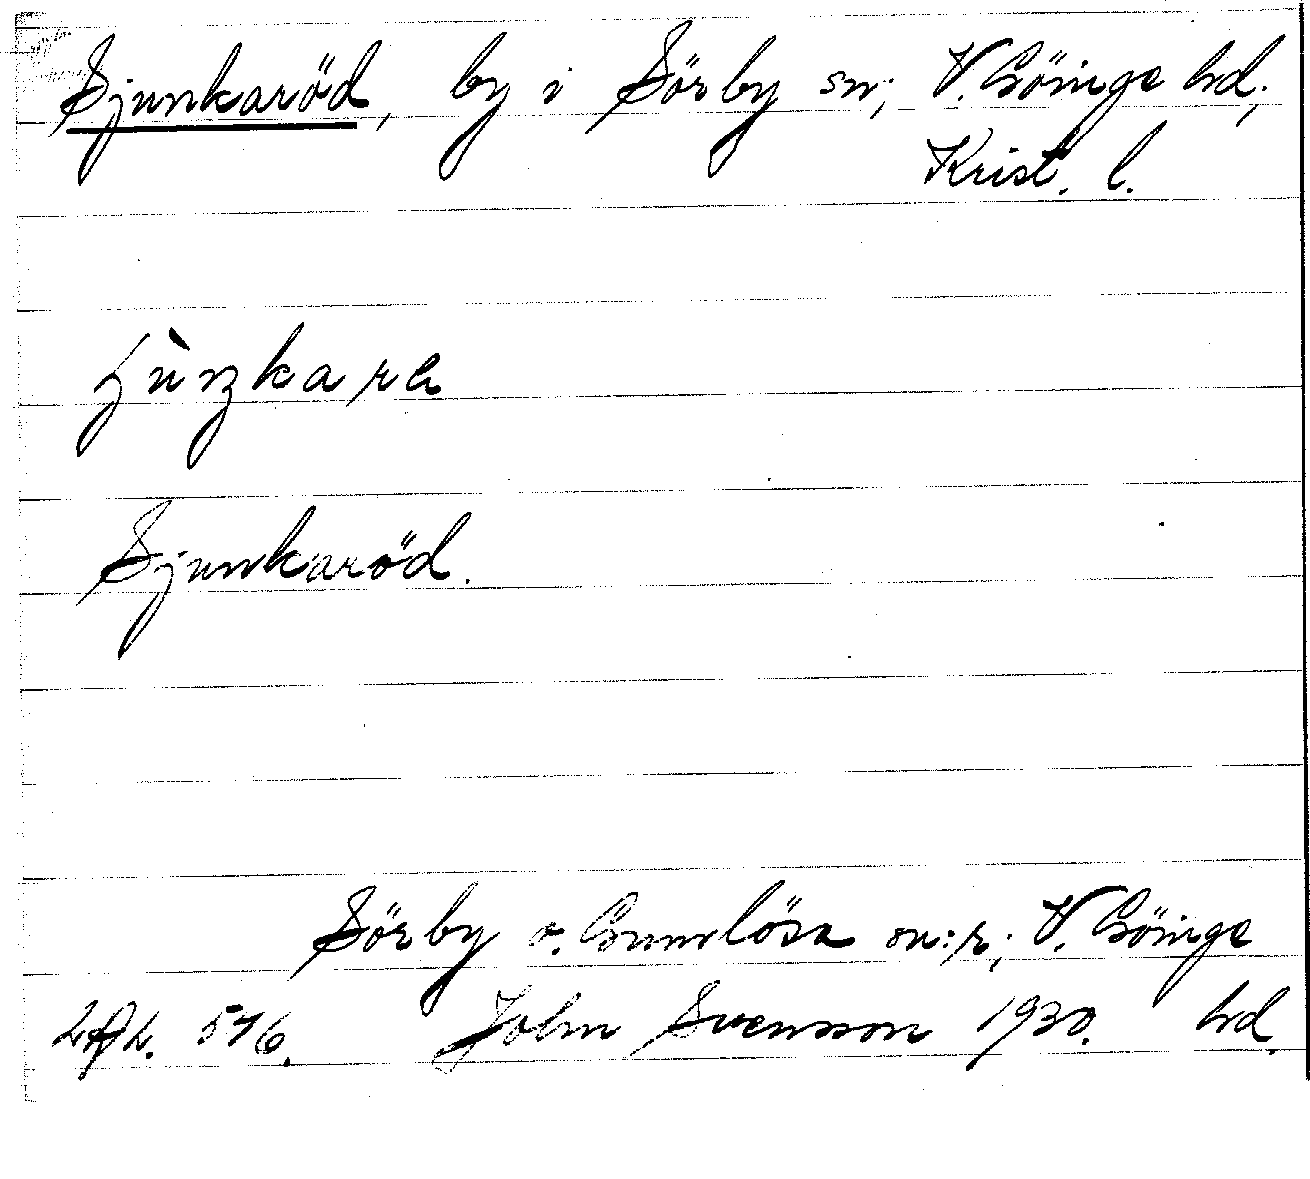 Sjunkaröd, by i Sörby sn; V. Göinge hd;
Krist. l.
Sjunkaröd.
Sörby o. Gumlösa sn:r; V. Göinge
546. John Svensson 1930. hd.